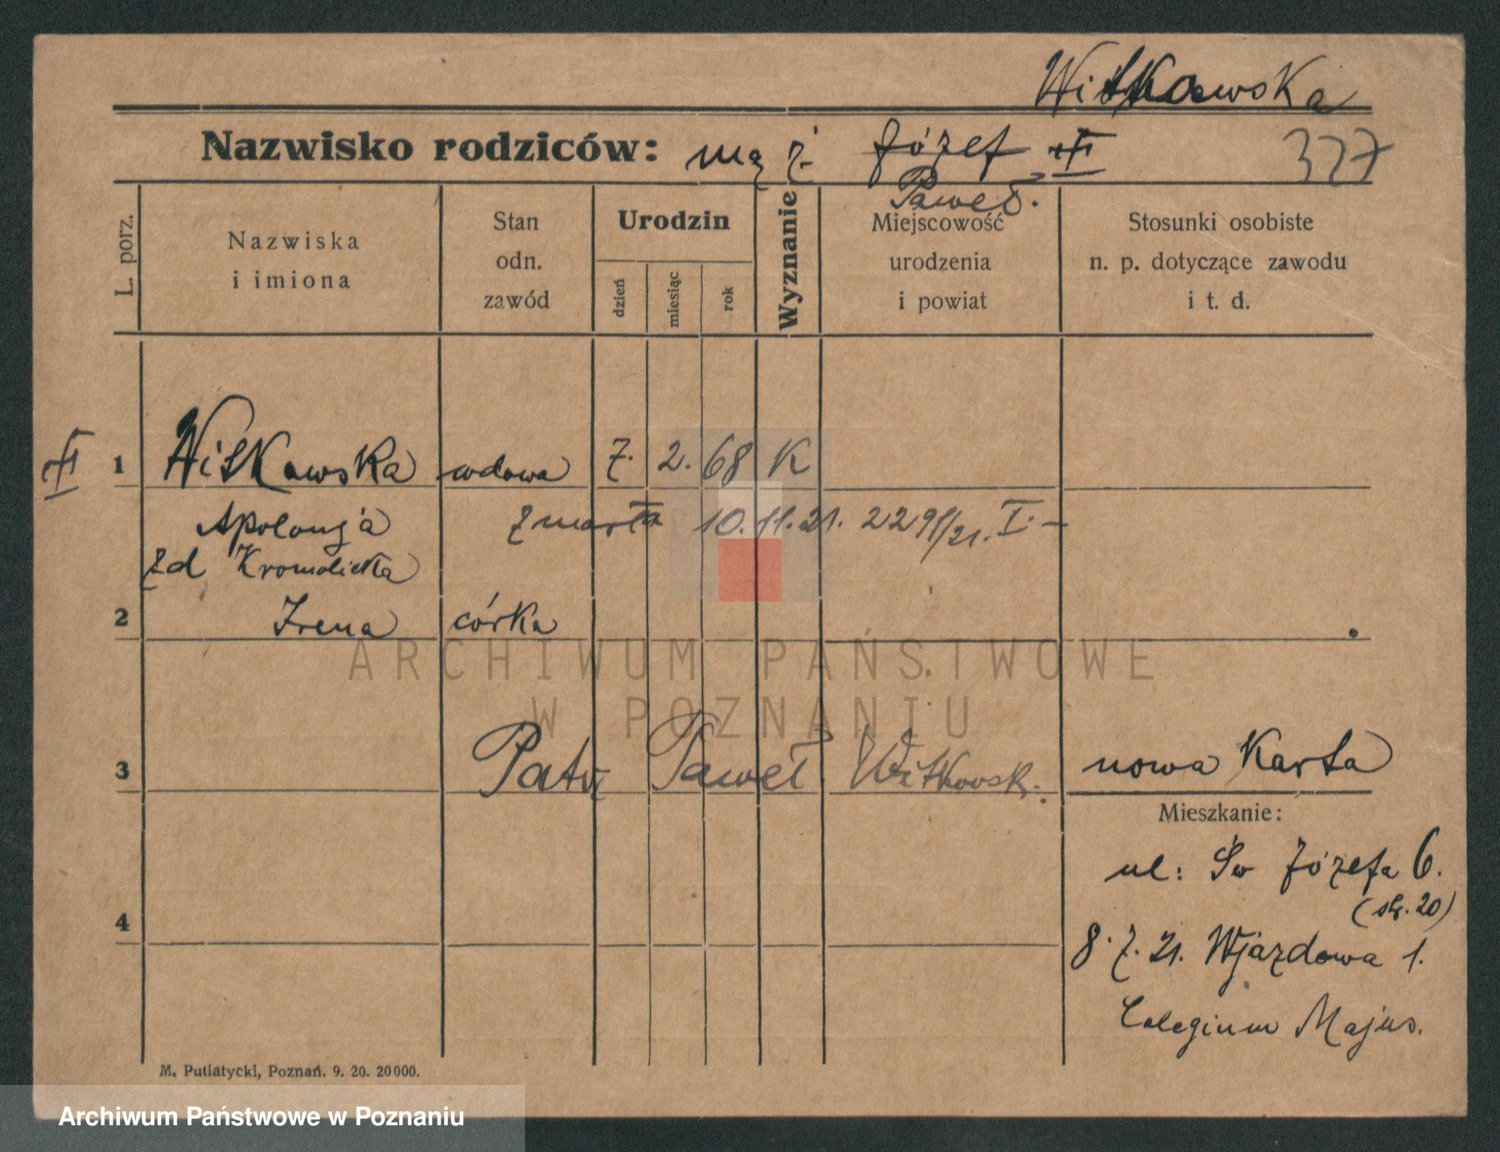 Witkowska
Nazwisko rodziców: mąż Józef
Paweł.
327
L. porz.
Nazwiska
i imiona
Stan
odn.
zawód
Urodzin
dzień
miesiąc
rok
Wyznanie
Miejscowość
urodzenia
i powiat
Stosunki osobiste
n. p. dotyczące zawodu
i t. d.
1 Witkowska wdowa 7. 2. 68 K
Apolonja zmarła 10.11.21. 2291/21. I. –
zd Kromolicka
2 Irena córka
ARCHIWUM PAŃSTWOWE
W POZNANIU
3 Patrz Paweł Witkowski. nowa Karta
Mieszkanie:
ul: Św Józefa 6.
(str. 20)
4
8. 7. 21. Wjazdowa 1.
Colegium Majus.
M. Putiatycki, Poznań. 9. 20. 20 000.
Archiwum Państwowe w Poznaniu